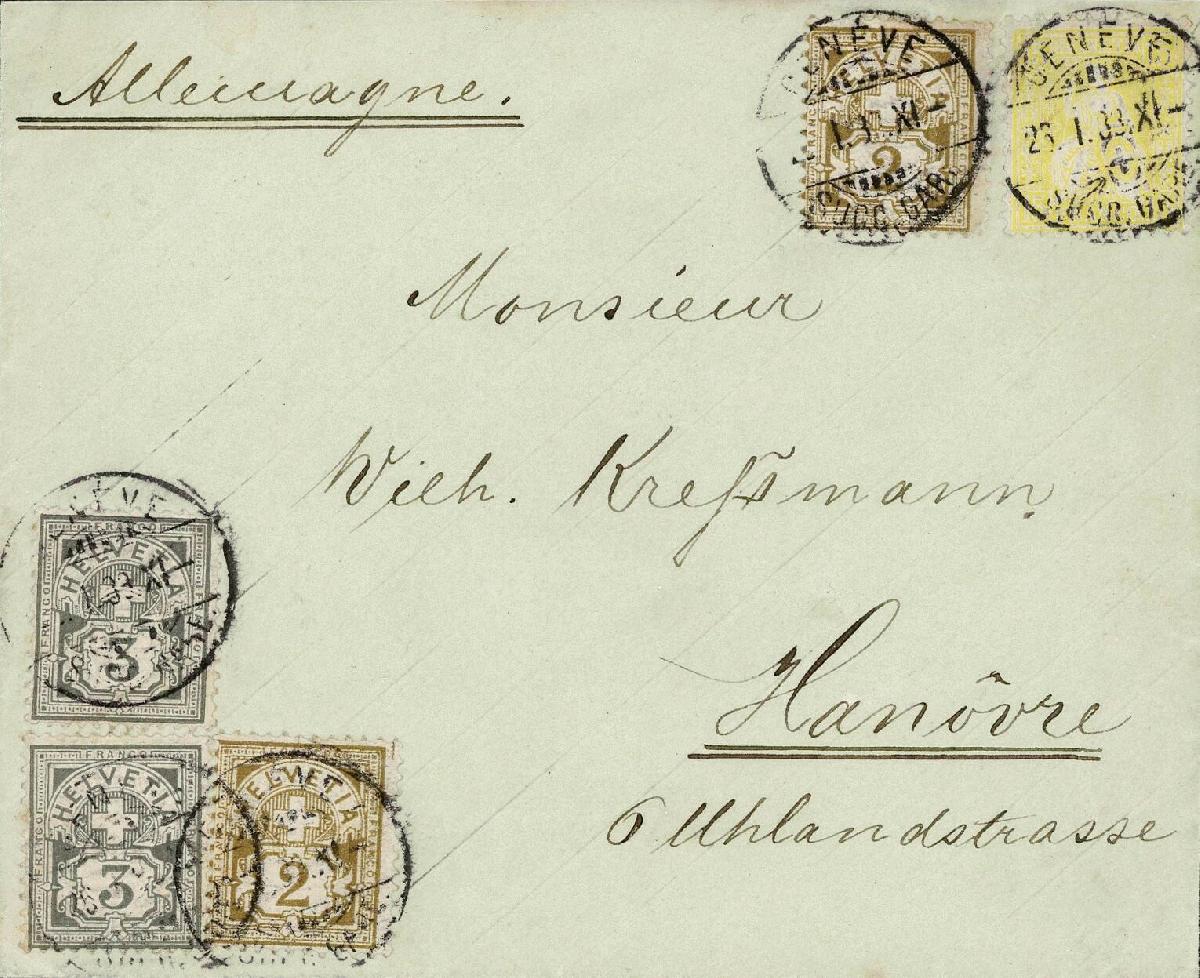 Allemagne.
GENÈVE
HELVETIA
FRANCO
2
SUCC. GARE
GENÈVE
I.83.XI
SUCC. GARE
Monsieur
Wilh. Kreßmann
Hanôvre
6 Uhlandstrasse
FRANCO
HELVETIA
FRANCO
3
FRANCO
HELVETIA
FRANCO
3
HELVETIA
2